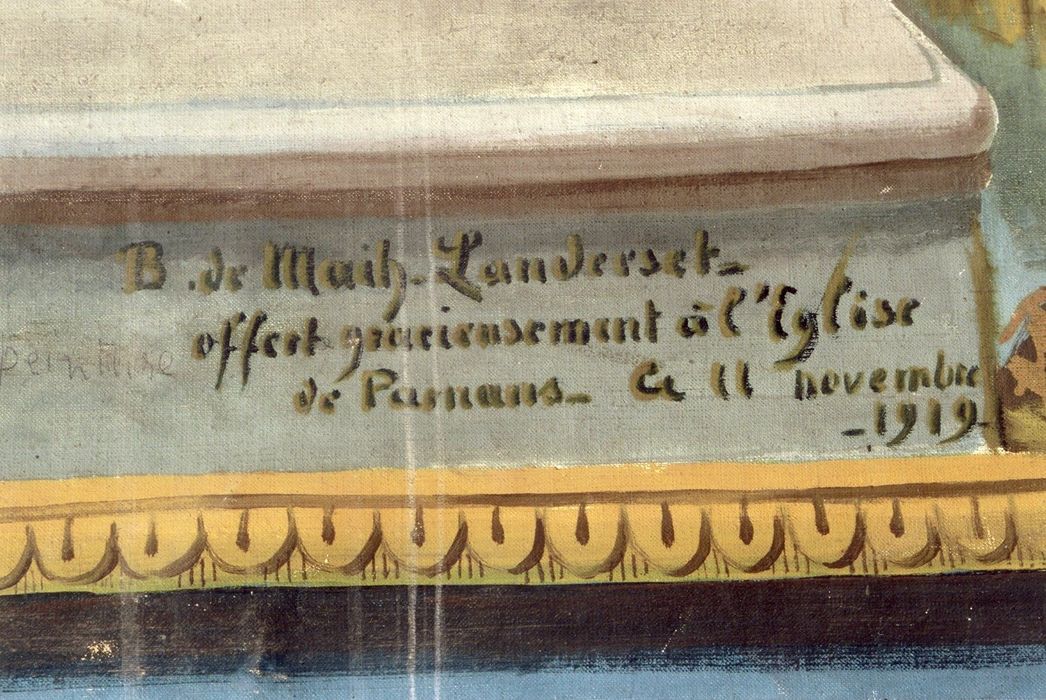 B. de Maih-Landerset-
offert gracieusement à l'Eglise
de Parnans_ Ce 11 novembre
_1919_